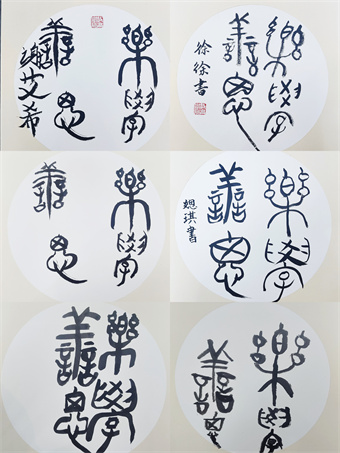 樂學
善思
谢艾希
樂學
善思
徐徐書
樂學
善思
樂學
善思
琪書
樂學
善思
樂學
善思